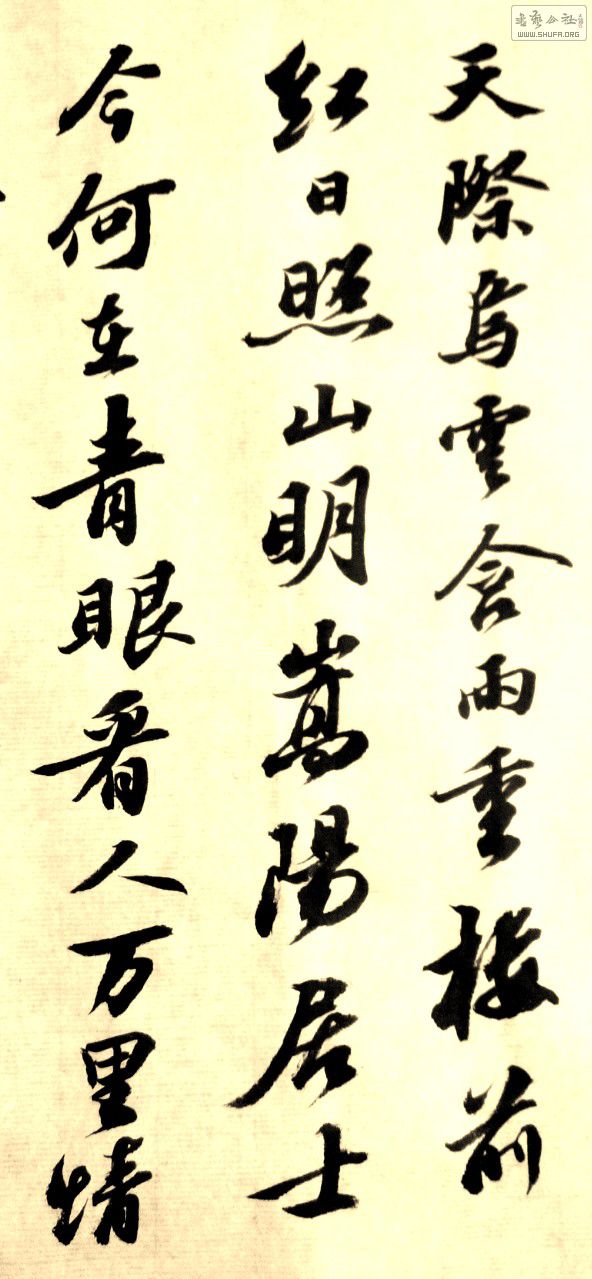 天際烏雲含雨重樓前
紅日照山明嵩陽居士
今何在青眼看人万里情
書藝公社
WWW.SHUFA.ORG